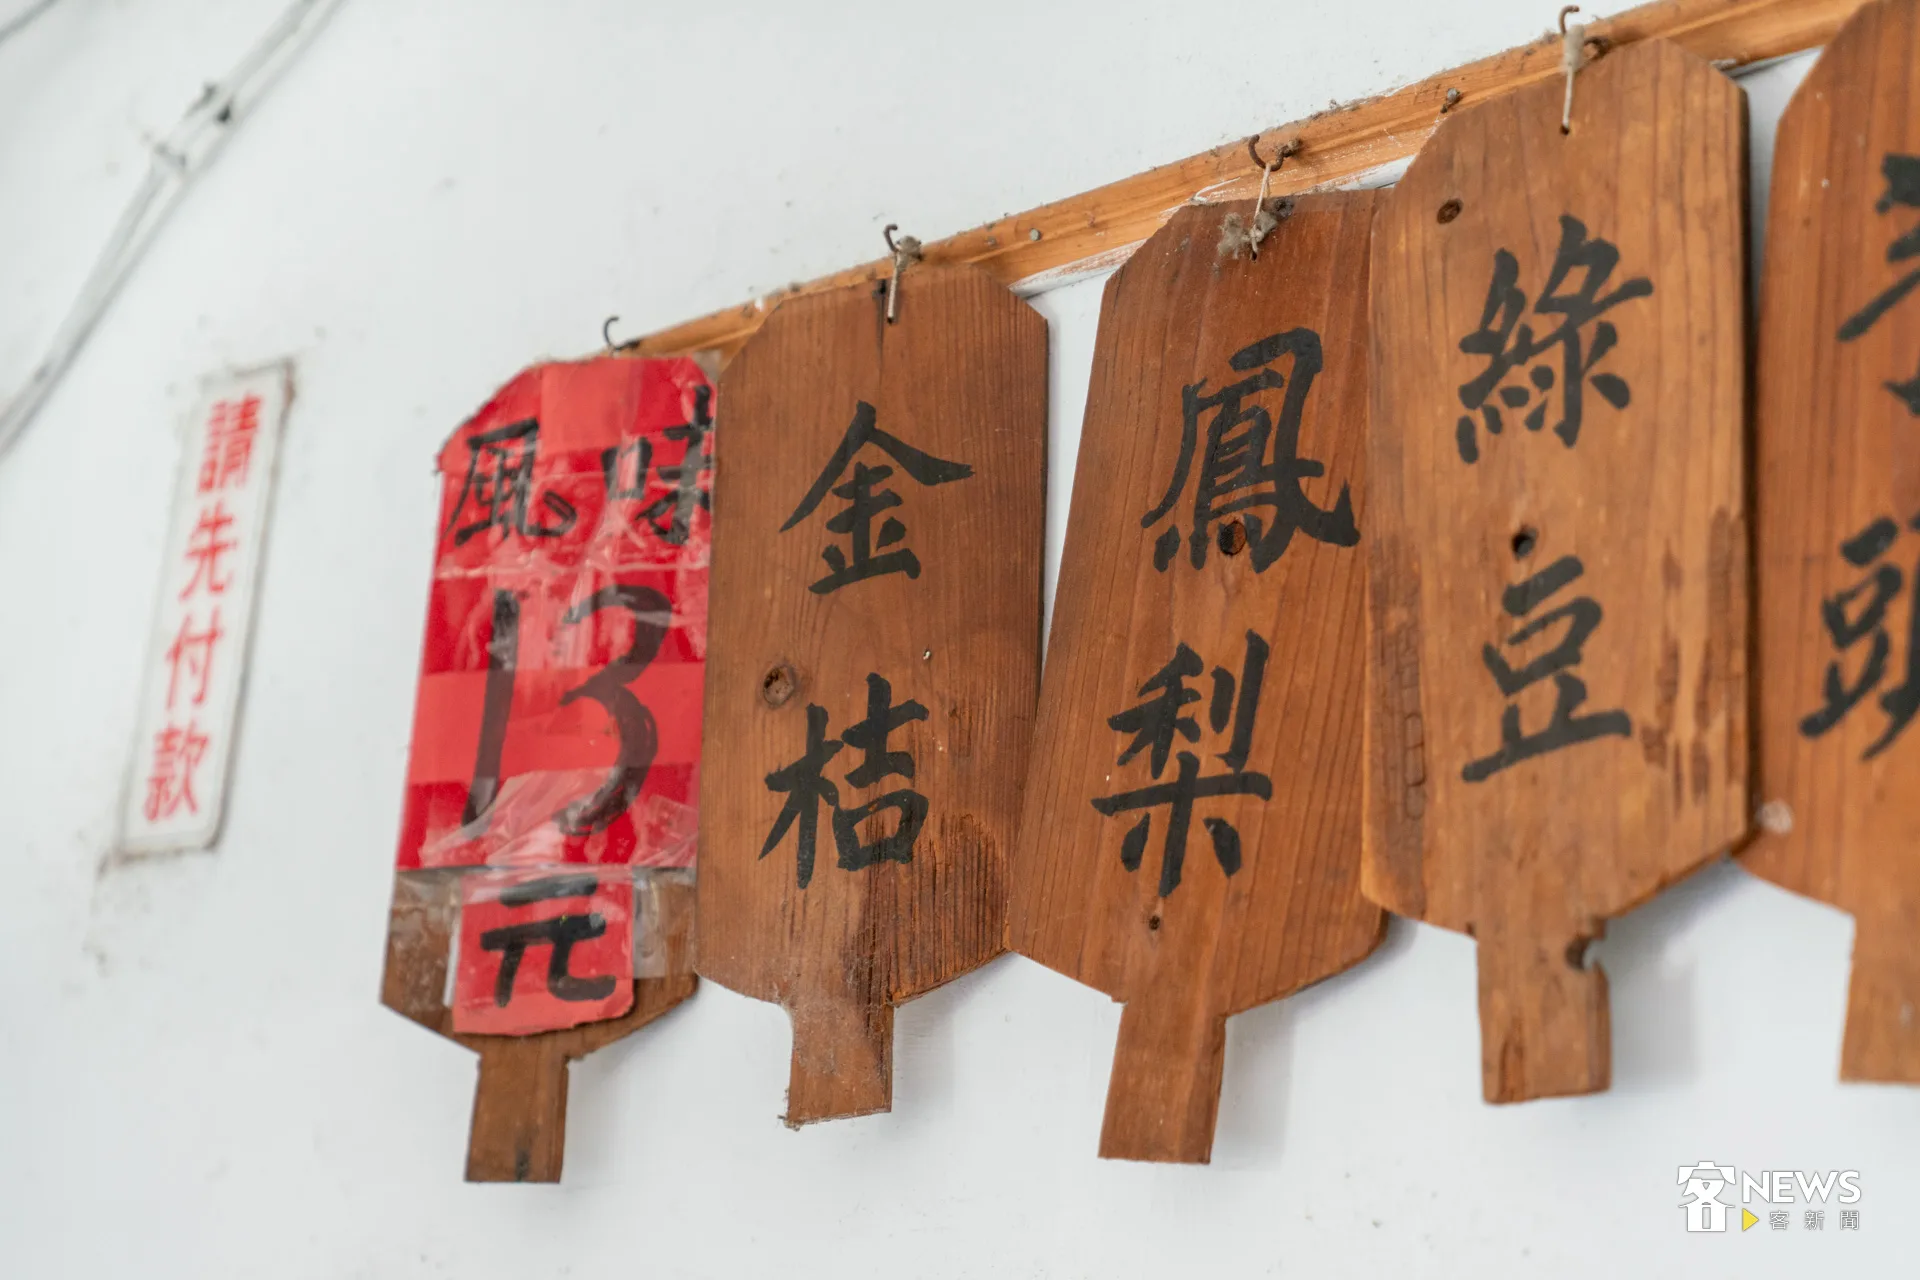 請先付款
風味
13
元
金桔
鳳梨
綠豆
頭
客NEWS
客新聞